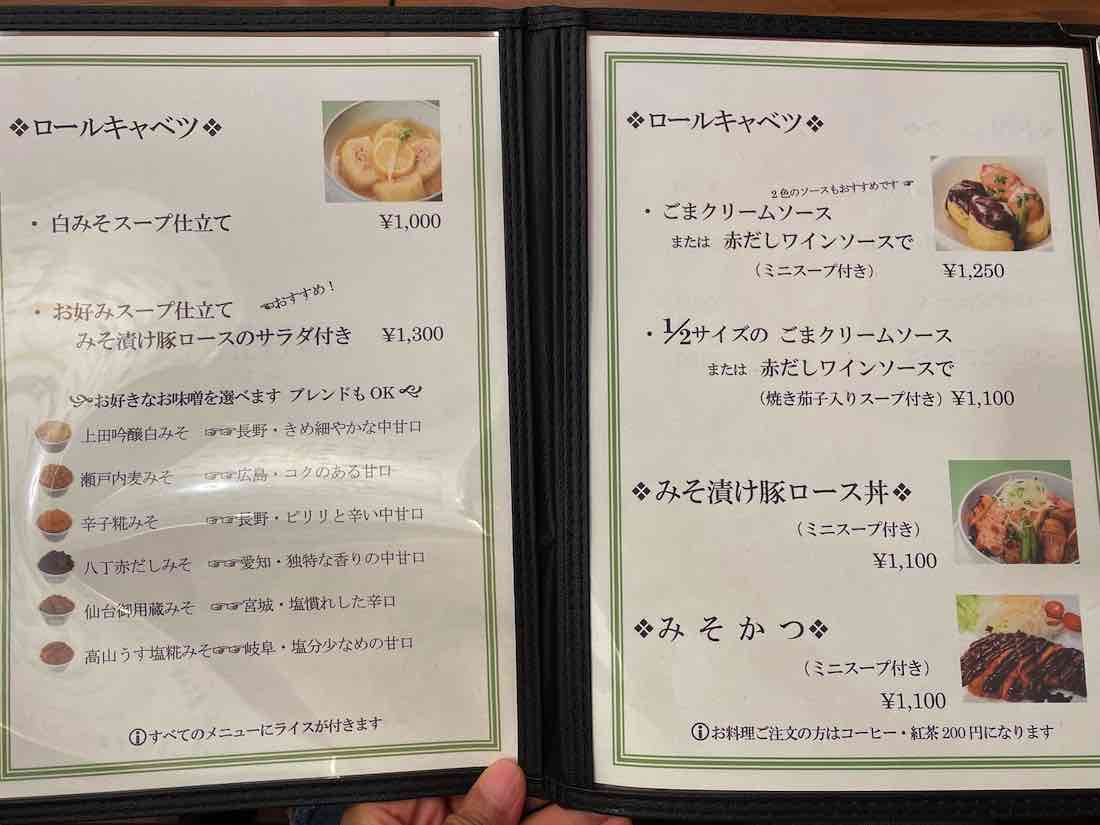 ❖ロールキャベツ❖
・白みそスープ仕立て ¥1,000
・お好みスープ仕立て ☜おすすめ!
みそ漬け豚ロースのサラダ付き ¥1,300
お好きなお味噌を選べます ブレンドもOK
上田吟醸白みそ ☞☞長野・きめ細やかな中甘口
瀬戸内麦みそ ☞☞広島・コクのある甘口
辛子糀みそ ☞☞長野・ピリリと辛い中甘口
八丁赤だしみそ ☞☞愛知・独特な香りの中甘口
仙台御用蔵みそ ☞☞宮城・塩慣れした辛口
高山うす塩糀みそ☞☞岐阜・塩分少なめの甘口
ⓘすべてのメニューにライスが付きます
❖ロールキャベツ❖
2色のソースもおすすめです☞
・ごまクリームソース
または 赤だしワインソースで
(ミニスープ付き) ¥1,250
・½サイズの ごまクリームソース
または 赤だしワインソースで
(焼き茄子入りスープ付き) ¥1,100
❖みそ漬け豚ロース丼❖
(ミニスープ付き)
¥1,100
❖みそかつ❖
(ミニスープ付き)
¥1,100
ⓘお料理ご注文の方はコーヒー・紅茶200円になります